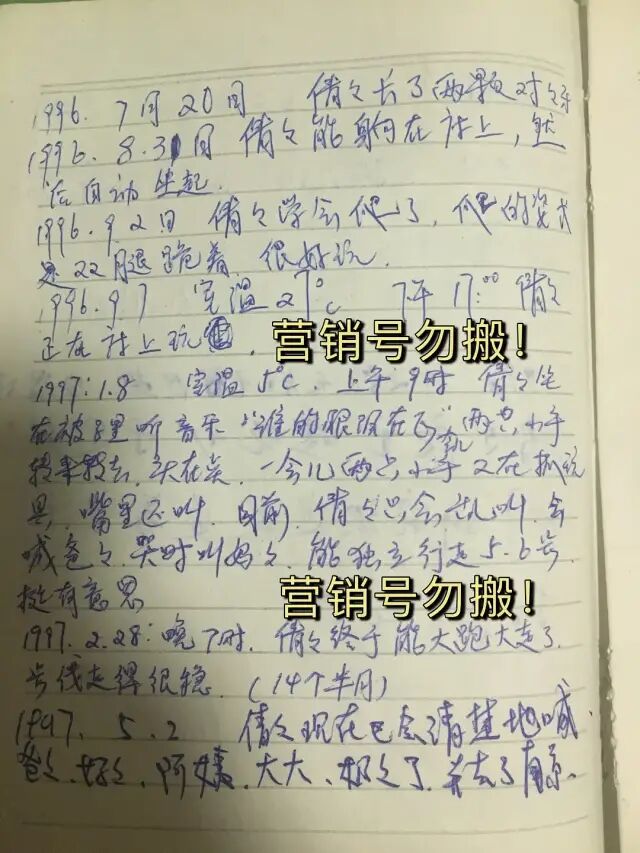 1996. 7月20日 倩々长了两颗对々牙
1996. 8.31日 倩々能躺在床上,然
后自动坐起.
1996.9.2日 倩々学会爬了,爬的姿式
是双腿跪着 很好玩.
1996.9.7 室温27℃ 下午17:00 倩々
正在床上玩.
营销号勿搬!
1997:1.8 室温5℃. 上午9时 倩々坐
在被子里听音乐"谁的眼泪在飞"两只小手
转来转去,头在晃.一会儿两只小手又在抓玩
具,嘴里还叫.目前,倩々只会乱叫.会
喊爸々.哭时叫妈々.能独立行走5.6步.
挺有意思
营销号勿搬!
1997.2.28:晚7时.倩々终于能大跑大走了.
步伐走得很稳.(14个半月)
1997. 5.2 倩々现在已会清楚地喊.
爸々.妈々.阿姨.大大、